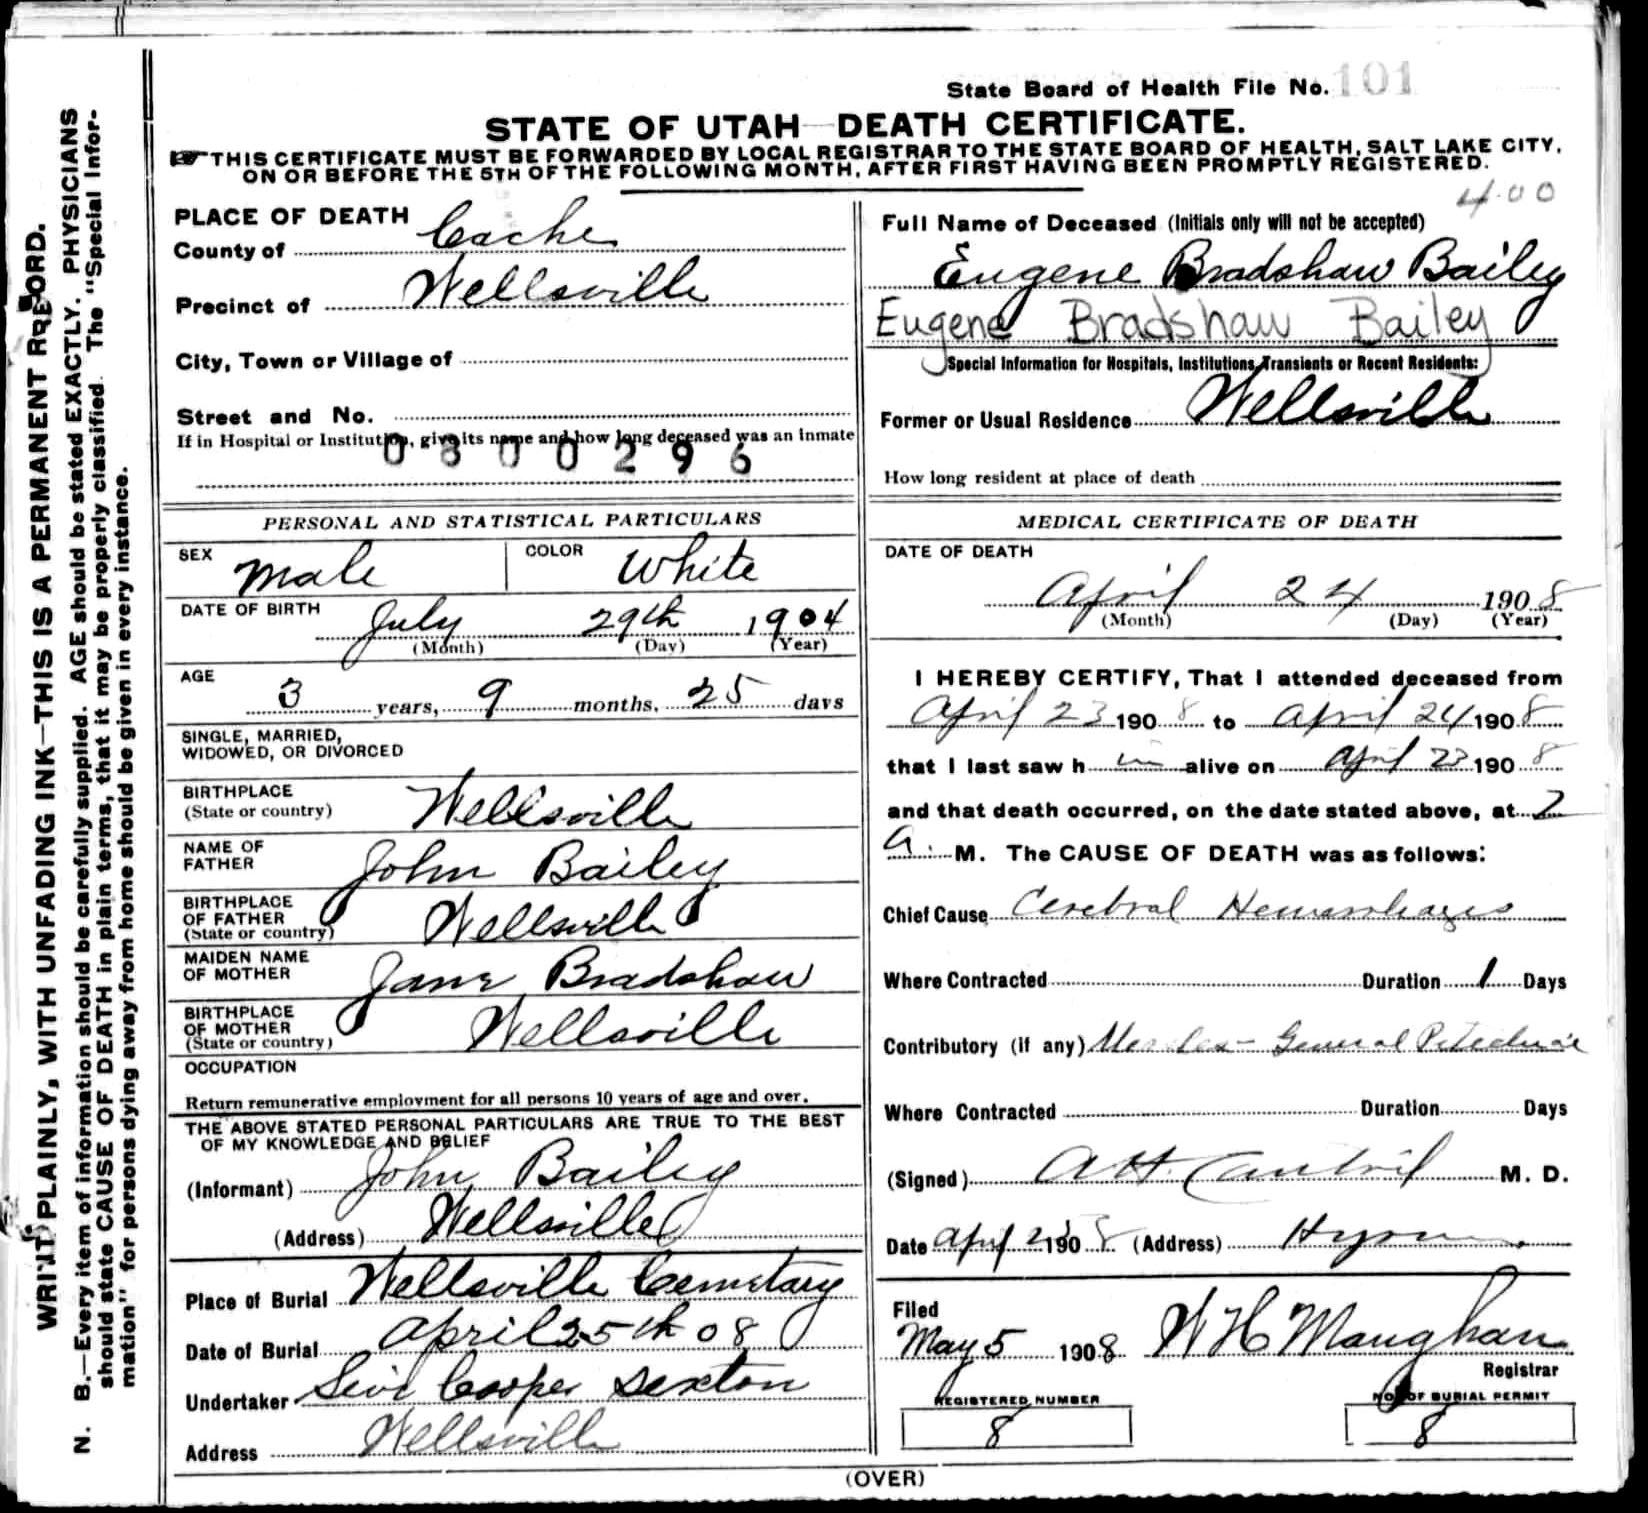 State Board of Health File No. 101
STATE OF UTAH—DEATH CERTIFICATE.
THIS CERTIFICATE MUST BE FORWARDED BY LOCAL REGISTRAR TO THE STATE BOARD OF HEALTH, SALT LAKE CITY,
ON OR BEFORE THE 5TH OF THE FOLLOWING MONTH, AFTER FIRST HAVING BEEN PROMPTLY REGISTERED.
WRITE PLAINLY, WITH UNFADING INK—THIS IS A PERMANENT RECORD.
N. B.—Every item of information should be carefully supplied. AGE should be stated EXACTLY. PHYSICIANS
should state CAUSE OF DEATH in plain terms, that it may be properly classified. The "Special Infor-
mation" for persons dying away from home should be given in every instance.
PLACE OF DEATH
County of Cache
Precinct of Wellsville
City, Town or Village of
Street and No.
If in Hospital or Institution, give its name and how long deceased was an inmate
0300296
PERSONAL AND STATISTICAL PARTICULARS
SEX Male COLOR White
DATE OF BIRTH
July 29th 1904
(Month) (Day) (Year)
AGE
3 years, 9 months, 25 days
SINGLE, MARRIED,
WIDOWED, OR DIVORCED
BIRTHPLACE
(State or country) Wellsville
NAME OF
FATHER John Bailey
BIRTHPLACE
OF FATHER
(State or country) Wellsville
MAIDEN NAME
OF MOTHER Jane Bradshaw
BIRTHPLACE
OF MOTHER
(State or country) Wellsville
OCCUPATION
Return remunerative employment for all persons 10 years of age and over.
THE ABOVE STATED PERSONAL PARTICULARS ARE TRUE TO THE BEST
OF MY KNOWLEDGE AND BELIEF
(Informant) John Bailey
(Address) Wellsville
Place of Burial Wellsville Cemetary
Date of Burial April 25th 08
Undertaker Levi Cooper Sexton
Address Wellsville
400
Full Name of Deceased (Initials only will not be accepted)
Eugene Bradshaw Bailey
Eugene Bradshaw Bailey
Special Information for Hospitals, Institutions, Transients or Recent Residents:
Former or Usual Residence Wellsville
How long resident at place of death
MEDICAL CERTIFICATE OF DEATH
DATE OF DEATH
April 24 1908
(Month) (Day) (Year)
I HEREBY CERTIFY, That I attended deceased from
April 23 1908 to April 24 1908
that I last saw him alive on April 23 1908
and that death occurred, on the date stated above, at 2
a. M. The CAUSE OF DEATH was as follows:
Chief Cause Cerebral Hemorrhages
Where Contracted Duration 1 Days
Contributory (if any) Measles - General
Where Contracted Duration Days
(Signed) A H Cantril M. D.
Date April 1908 (Address) Hyrum
Filed
May 5 1908 W H Maughan
Registrar
REGISTERED NUMBER
8
NO. OF BURIAL PERMIT
8
(OVER)